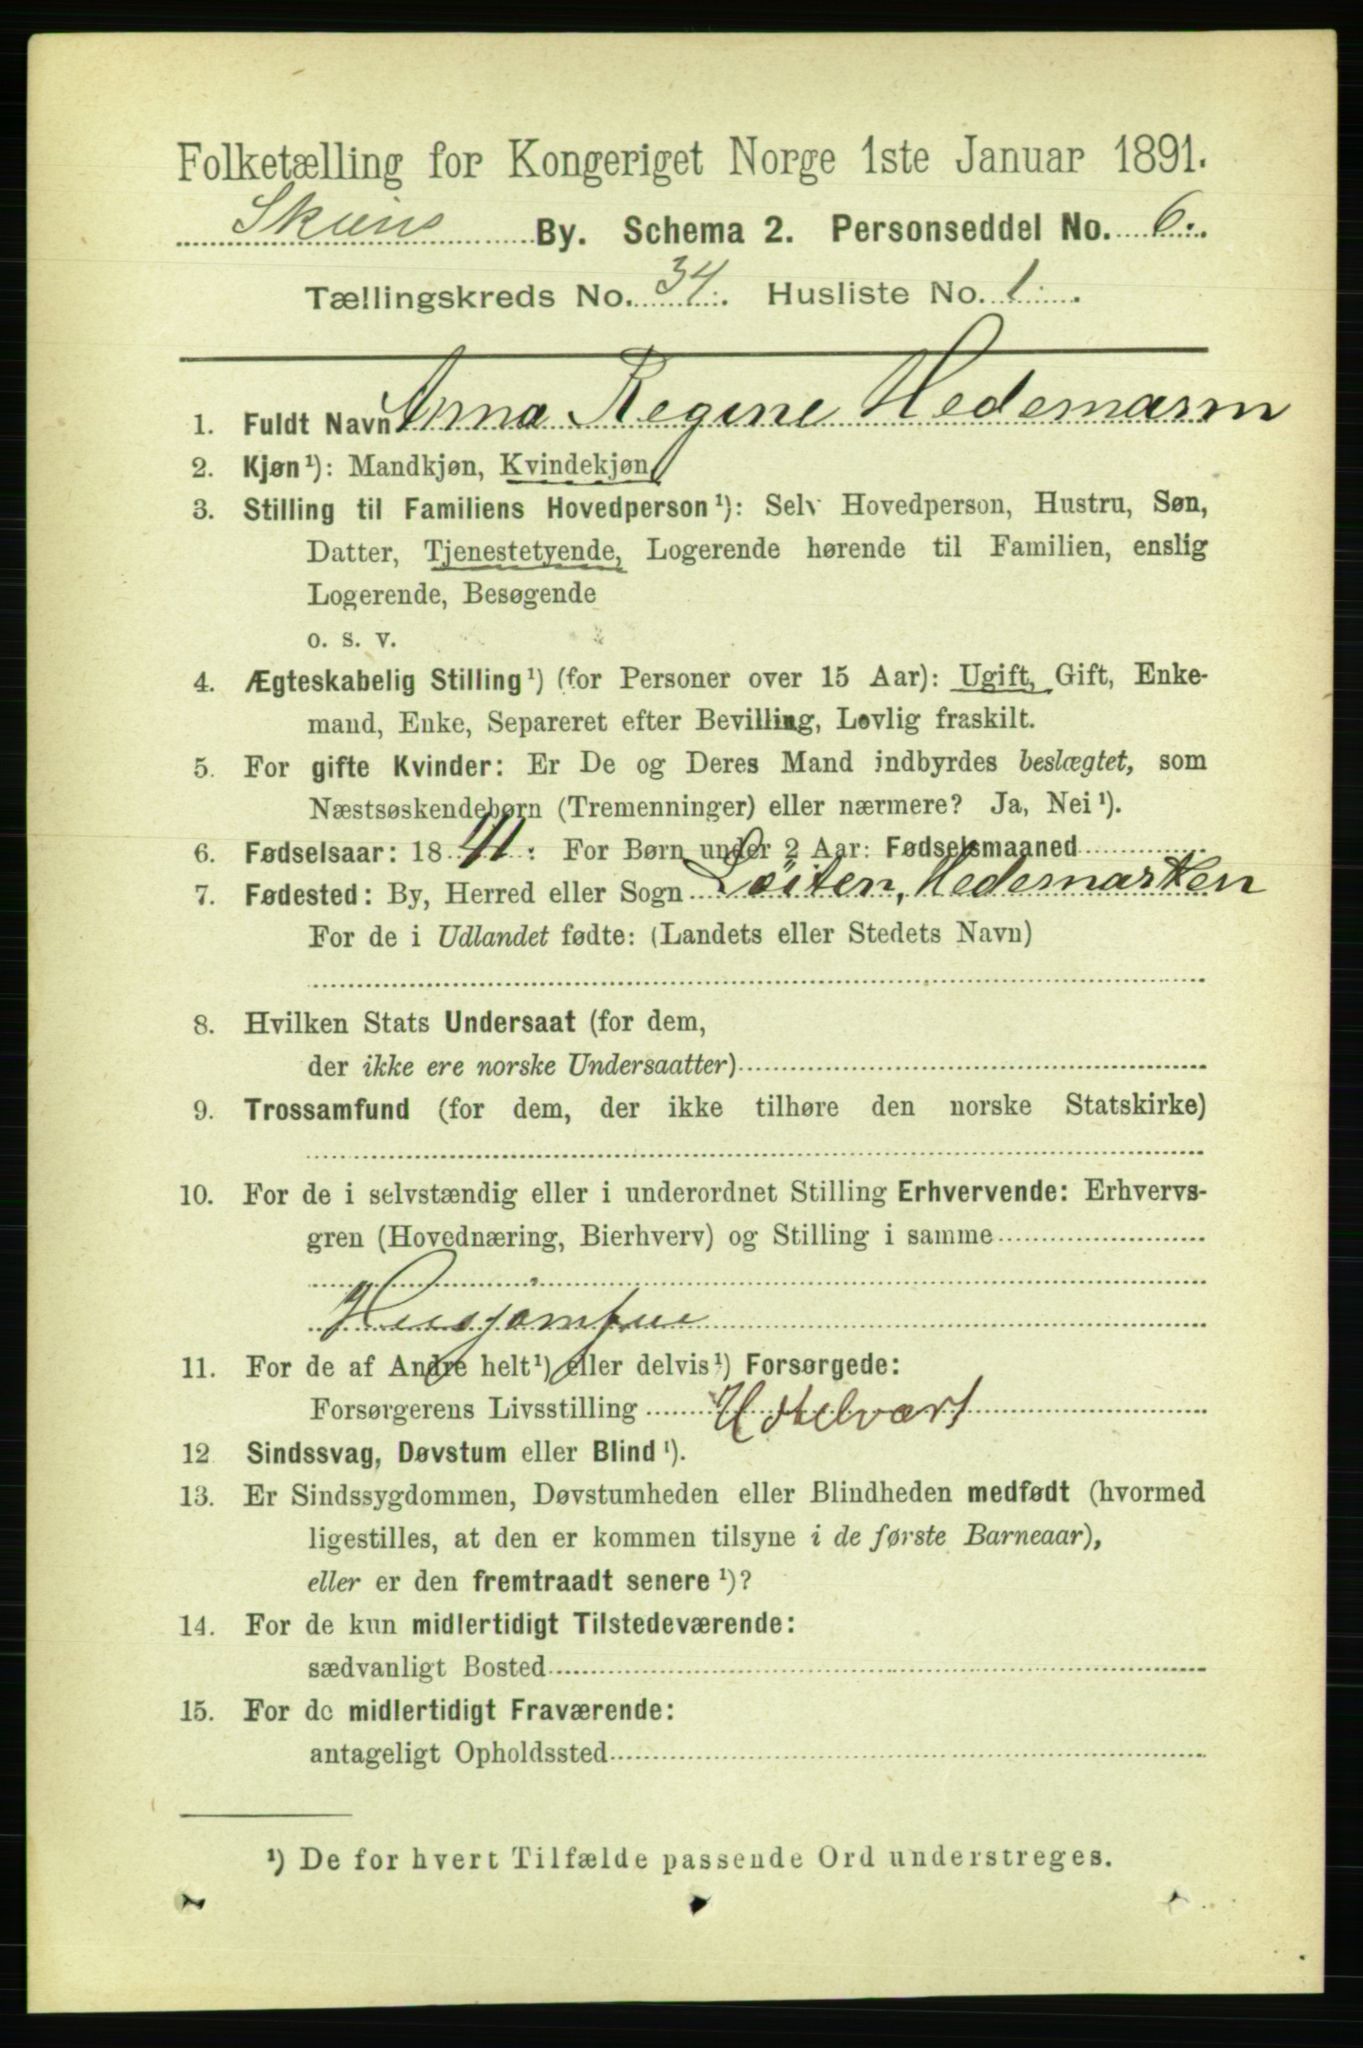 Folketælling for Kongeriget Norge 1ste Januar 1891.
Skiens By. Schema 2. Personseddel No. 6.
Tællingskreds No. 34. Husliste No. 1.
1. Fuldt Navn Anna Regine Hedemann
2. Kjøn¹): Mandkjøn, Kvindekjøn
3. Stilling til Familiens Hovedperson¹): Selv Hovedperson, Hustru, Søn,
Datter, Tjenestetyende, Logerende hørende til Familien, enslig
Logerende, Besøgende
o. s. v.
4. Ægteskabelig Stilling¹) (for Personer over 15 Aar): Ugift, Gift, Enke-
mand, Enke, Separeret efter Bevilling, Lovlig fraskilt.
5. For gifte Kvinder: Er De og Deres Mand indbyrdes beslægtet, som
Næstsøskendebørn (Tremenninger) eller nærmere? Ja, Nei¹).
6. Fødselsaar: 1841: For Børn under 2 Aar: Fødselsmaaned
7. Fødested: By, Herred eller Sogn Löiten, Hedemarken
For de i Udlandet fødte: (Landets eller Stedets Navn)
8. Hvilken Stats Undersaat (for dem,
der ikke ere norske Undersaatter)
9. Trossamfund (for dem, der ikke tilhøre den norske Statskirke)
10. For de i selvstændig eller i underordnet Stilling Erhvervende: Erhvervs-
gren (Hovednæring, Bierhverv) og Stilling i samme
Husjomfrue
11. For de af Andre helt¹) eller delvis¹) Forsørgede:
Forsørgerens Livsstilling Hotelvært
12 Sindssvag, Døvstum eller Blind¹).
13. Er Sindssygdommen, Døvstumheden eller Blindheden medfødt (hvormed
ligestilles, at den er kommen tilsyne i de første Barneaar),
eller er den fremtraadt senere¹)?
14. For de kun midlertidigt Tilstedeværende:
sædvanligt Bosted
15. For de midlertidigt Fraværende:
antageligt Opholdssted
¹) De for hvert Tilfælde passende Ord understreges.